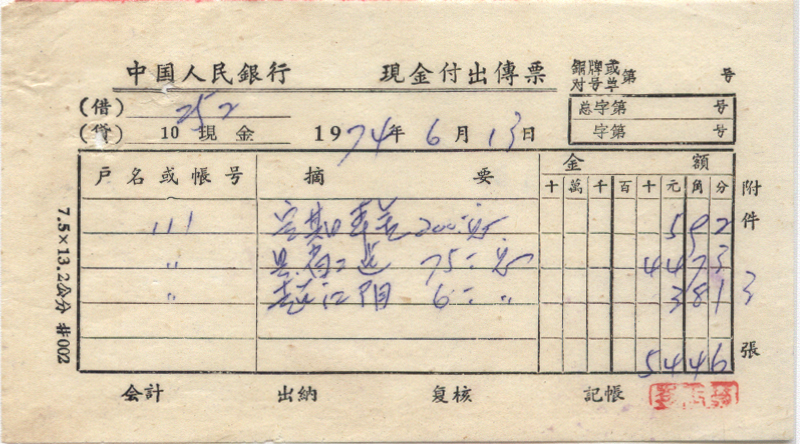 中国人民銀行 現金付出傳票 銅牌或对号单第 号
(借) 252 总字第 号
(貸) 10 現金 1974年6月13日 字第 号
戶名或帳号 摘要 金額
十萬千百十元角分
111 200 592
〃 75 4473
〃 6 〃 381
5446
附件 3 張
会計 出納 复核 記帳
7.5×13.2公分 #002